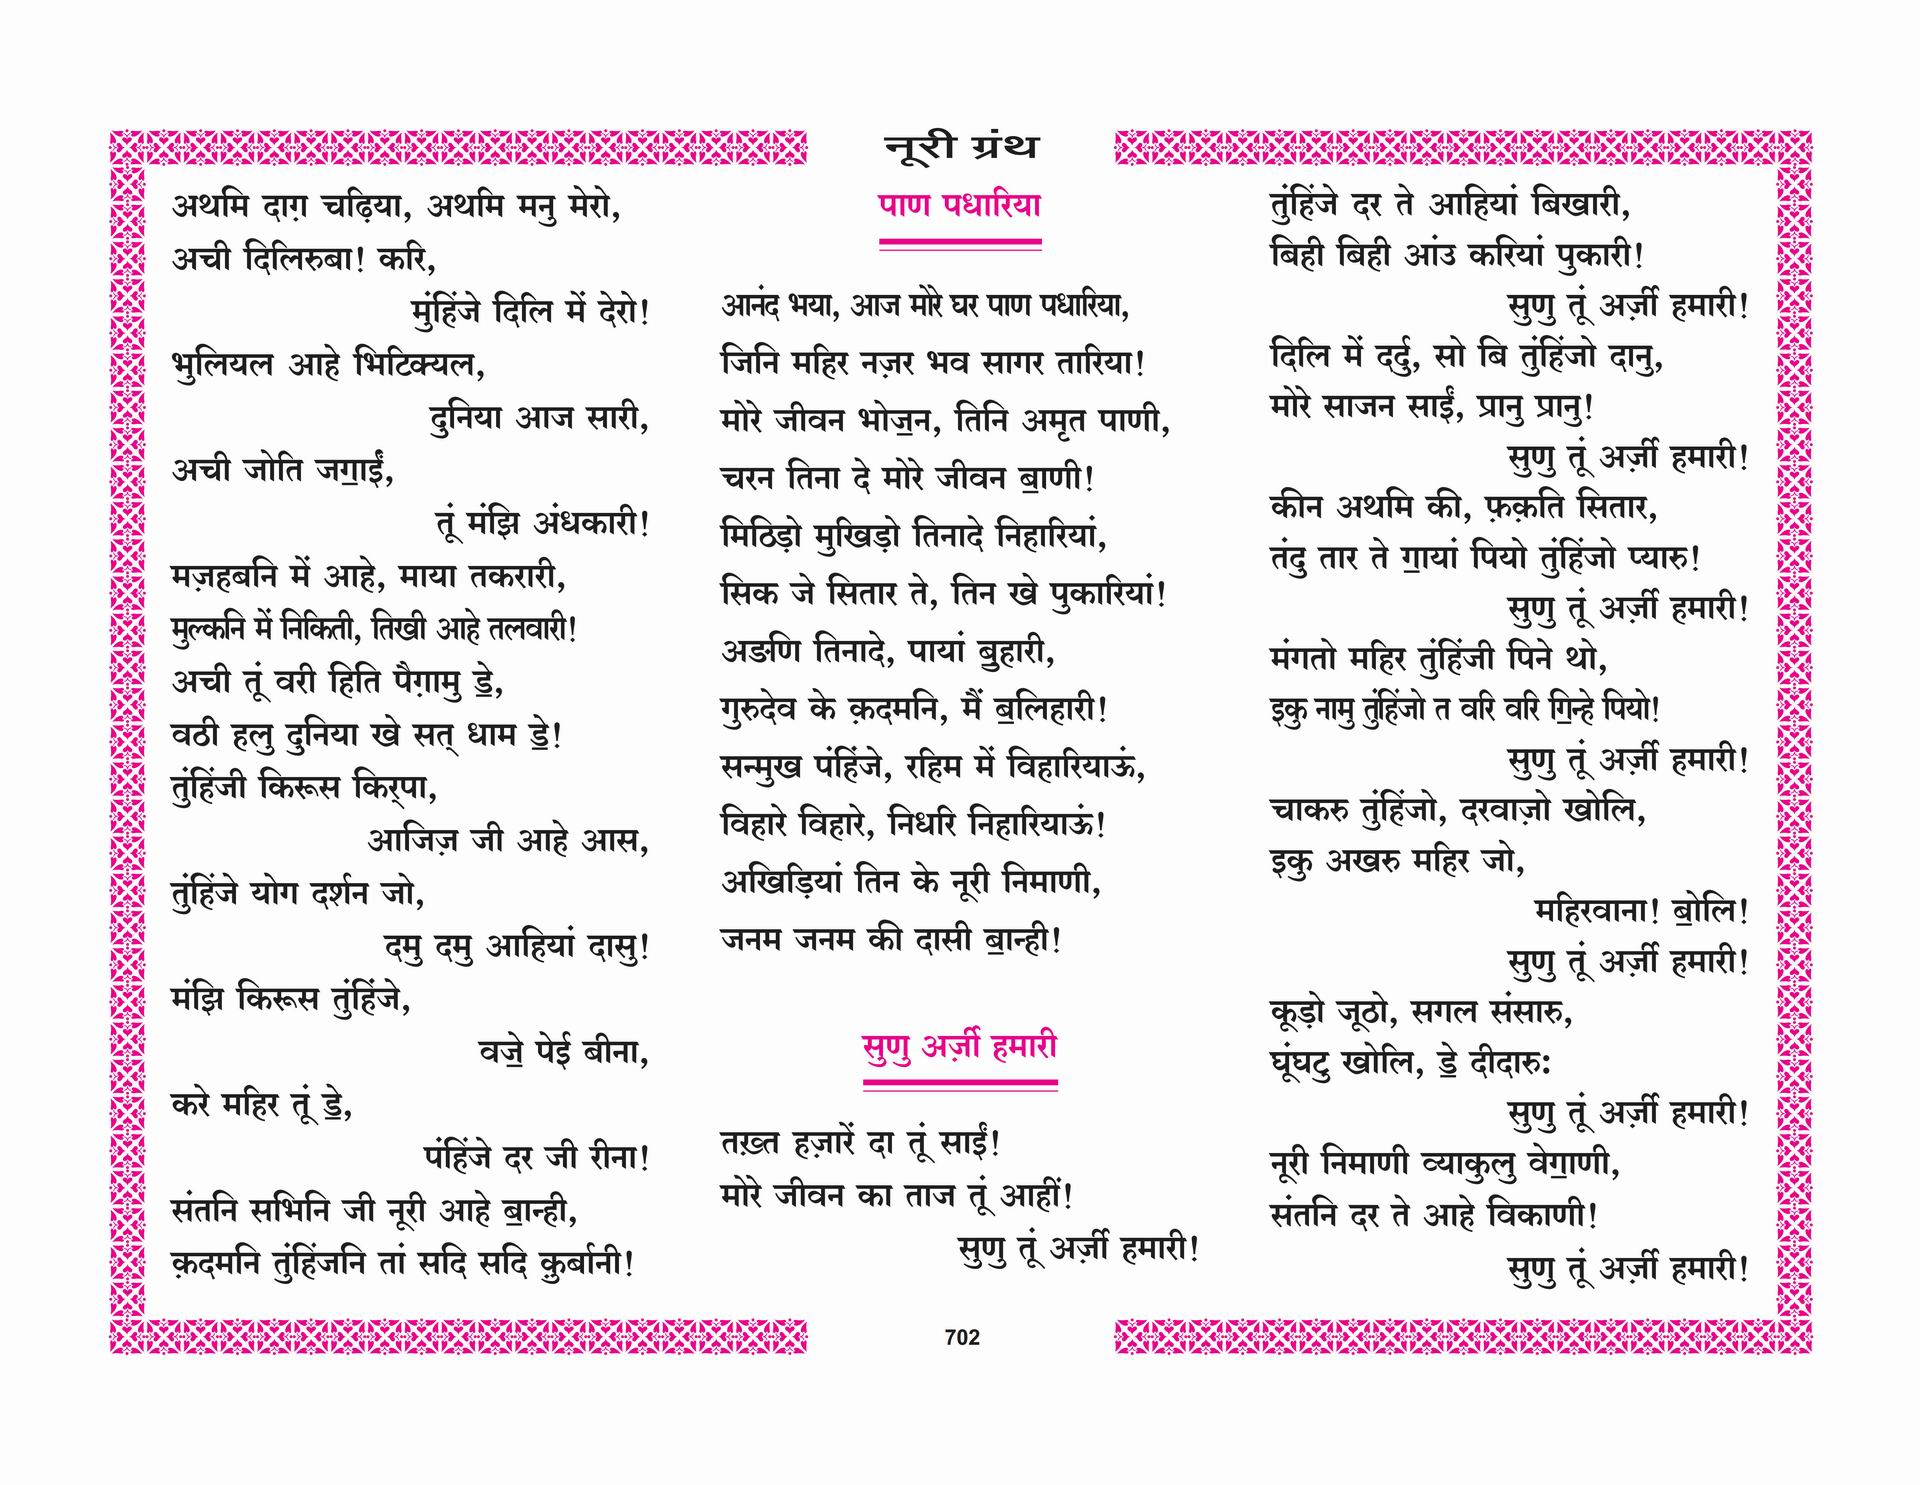 नूरी ग्रंथ
अथमि दाग़ चढ़िया, अथमि मनु मेरो,
अची दिलिरुबा! करि,
मुंहिंजे दिलि में देरो!
भुलियल आहे भिटिक्यल,
दुनिया आज सारी,
अची जोति जॻाईं,
तूं मंझि अंधकारी!
मज़हबनि में आहे, माया तकरारी,
मुल्कनि में निकिती, तिखी आहे तलवारी!
अची तूं वरी हिति पैग़ामु ॾे,
वठी हलु दुनिया खे सत् धाम ॾे!
तुंहिंजी किरूस किर्‌पा,
आजिज़ जी आहे आस,
तुंहिंजे योग दर्शन जो,
दमु दमु आहियां दासु!
मंझि किरूस तुंहिंजे,
वॼे पेई बीना,
करे महिर तूं ॾे,
पंहिंजे दर जी रीना!
संतनि सभिनि जी नूरी आहे ॿान्ही,
क़दमनि तुंहिंजनि तां सदि सदि क़ुर्बानी!
पाण पधारिया
आनंद भया, आज मोरे घर पाण पधारिया,
जिनि महिर नज़र भव सागर तारिया!
मोरे जीवन भोॼन, तिनि अमृत पाणी,
चरन तिना दे मोरे जीवन ॿाणी!
मिठिड़ो मुखिड़ो तिनादे निहारियां,
सिक जे सितार ते, तिन खे पुकारियां!
अङणि तिनादे, पायां ॿुहारी,
गुरुदेव के क़दमनि, मैं ॿलिहारी!
सन्मुख पंहिंजे, रहिम में विहारियाऊं,
विहारे विहारे, निधरि निहारियाऊं!
अखिड़ियां तिन के नूरी निमाणी,
जनम जनम की दासी ॿान्ही!
सुणु अर्ज़ी हमारी
तख़्त हज़ारें दा तूं साईं!
मोरे जीवन का ताज तूं आहीं!
सुणु तूं अर्ज़ी हमारी!
तुंहिंजे दर ते आहियां बिखारी,
बिही बिही आंउ करियां पुकारी!
सुणु तूं अर्ज़ी हमारी!
दिलि में दर्दु, सो बि तुंहिंजो दानु,
मोरे साजन साईं, प्रानु प्रानु!
सुणु तूं अर्ज़ी हमारी!
कीन अथमि की, फ़क़ति सितार,
तंदु तार ते ॻायां पियो तुंहिंजो प्यारु!
सुणु तूं अर्ज़ी हमारी!
मंगतो महिर तुंहिंजी पिने थो,
इकु नामु तुंहिंजो त वरि वरि ॻिन्हे पियो!
सुणु तूं अर्ज़ी हमारी!
चाकरु तुंहिंजो, दरवाज़ो खोलि,
इकु अखरु महिर जो,
महिरवाना! ॿोलि!
सुणु तूं अर्ज़ी हमारी!
कूड़ो जूठो, सगल संसारु,
घूंघटु खोलि, ॾे दीदारु:
सुणु तूं अर्ज़ी हमारी!
नूरी निमाणी व्याकुलु वेॻाणी,
संतनि दर ते आहे विकाणी!
सुणु तूं अर्ज़ी हमारी!
702